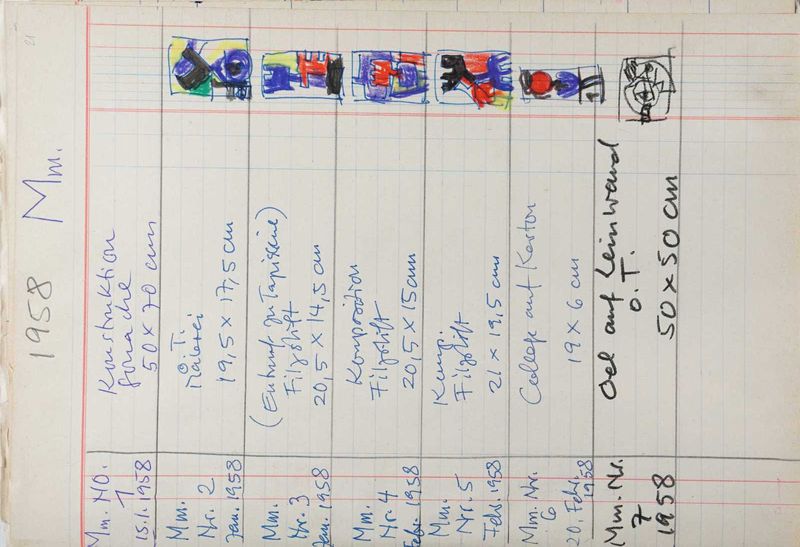 1958 Mm.
Mm. NO.
1
15.1.1958
Konstruktion
Gouache
50 x 70 cm
Mm.
Nr. 2
Jan. 1958
O.T.
Malerei
19,5 x 17,5 cm
Mm.
Nr. 3
Jan. 1958
(Entwurf zu Tapisserie)
Filzstift
20,5 x 14,5 cm
Mm.
Nr. 4
Febr. 1958
Komposition
Filzstift
20,5 x 15 cm
Mm.
Nr. 5
Febr. 1958
Komp.
Filzstift
21 x 19,5 cm
Mm. Nr.
6
20. Febr.
1958
Collage auf Karton
19 x 6 cm
Mm. Nr.
7
1958
Oel auf Leinwand
O.T.
50 x 50 cm